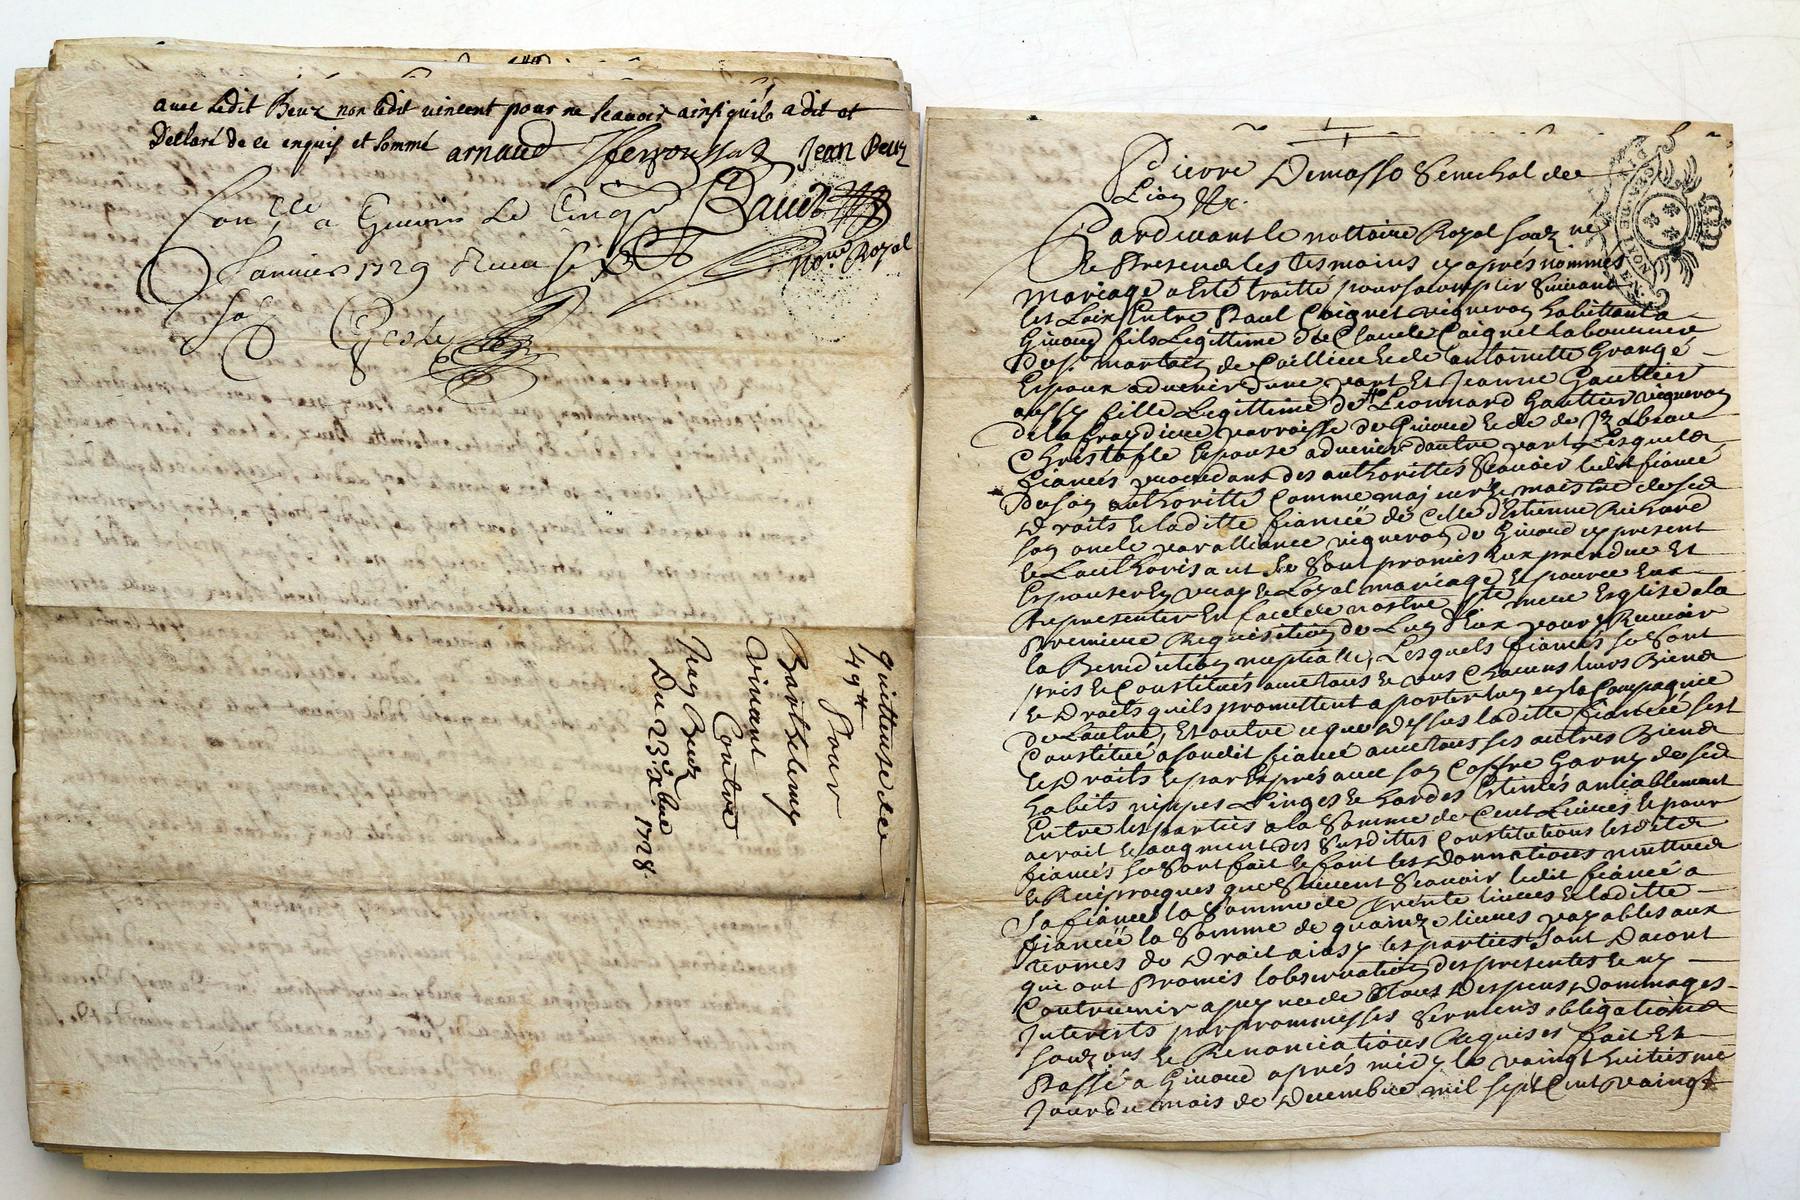 avec Ledit Beuz non Ledit vincent pour ne scavoir ainsi quil a dit et
Declaré de ce enquis et sommé arnaud Jean Beuz
Con.lle a Givors Le Cinq.e Baud
Janvier 1729 Receu six s not.re Royal
quittance de
49tt Pour
Barthelemy
vincent
Contre
Jean Beuz
Du 23.e x.bre 1728.
Pierre Demasso Senechal de
Lion &c.
GEN. DE LION
Pardevant le nottaire Royal souz.né
Et Presence les tesmoins cy apres nommes
mariage a Esté traitté pour sacomplir suivant
les Loix Entre Paul Coignet vigneron habittant a
Givord fils Legittime de Claude Coignet laboureur
De st martin de Cuillieu et de antoinette Grangé
Espoux advenir dune part Et Jeanne Gauttier
aussy fille Legittime de Leonnard Gauttier vigneron
de la fraydiere parroisse de Givord et de
Christofle Espouse advenir dautre part Lesquels
fiancés procedans des authorittes Scavoir ledit fiancé
De son authoritté Comme majeur et maistre de ses
Droits et laditte fiancéé de Celle d'Estienne Richard
son oncle par alliance vigneron de Givord cy present
et Lauthorisant se sont promis Eux prendre Et
Espouser En vray et Loyal mariage et pource Eux
Representer En face de nostre ste mere Esglise a la
Premiere Requisition de Lun d'Eux pour y Recevoir
la Benediction nuptialle, Lesquels fiancés se sont
pris et Constitués avec tous et uns Chacuns leurs Biens
et Droits quils promettent a porter lun en la Compagnie
de Lautre, Et outre ce que dessus laditte fiancéé sest
Constitué a sondit fiancé avec tous ses autres Biens
et Droits et par Exprés avec son Coffre Garny de ses
habits nippes Linges et hardes Estimés amiablement
Entre les parties a la Somme de Cent Livres et pour
acroit et augment des susdittes Constitutions lesdits
fiancés se sont fait et font les donnations mutues
et Reciproques que Suivent Scavoir ledit fiancé a
sa fiancéé la Somme de Trente livres et laditte
fiancéé la Somme de quainze livres payables aux
termes de Droit ainsy les parties sont Dacort
qui ont Promis lobservation des presentes et ny
Contrevenir a peyne de tous Despens Dommages
Interets par promesses Sermens obligations
souz.ons et Renonciations Requises fait Et
Passé a Givord aprés midy le vaingt huitiesme
Jour du mois de Decembre mil sept Cent vaingt